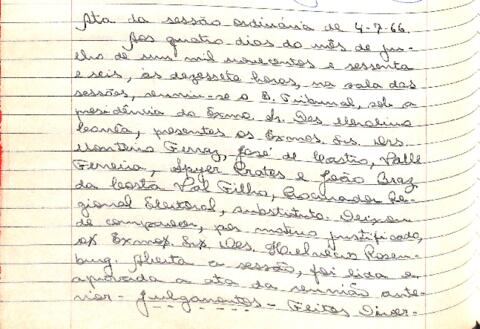 Ata da sessão ordinária de 4-7-66.
Aos quatro dias do mês de ju-
lho de um mil novecentos e sessenta
e seis, às dezessete horas, na sala das
sessões, reuniu-se o E. Tribunal, sob a
presidência do Exmo. Sr. Des. Merolino
Corrêa, presentes os Exmos. Srs. Drs.
Monteiro Ferraz, José de Castro, Valle
Ferreira, Spyer Prates e João Braz
da Costa Val Filho, Procurador Re-
gional Eleitoral, substituto. Deixou
de comparecer, por motivo justificado,
o Exmo. Sr. Des. Helvécio Rosen-
burg. Aberta a sessão, foi lida e
aprovada a ata da reunião ante-
rior - Julgamentos - Feitos Diver-